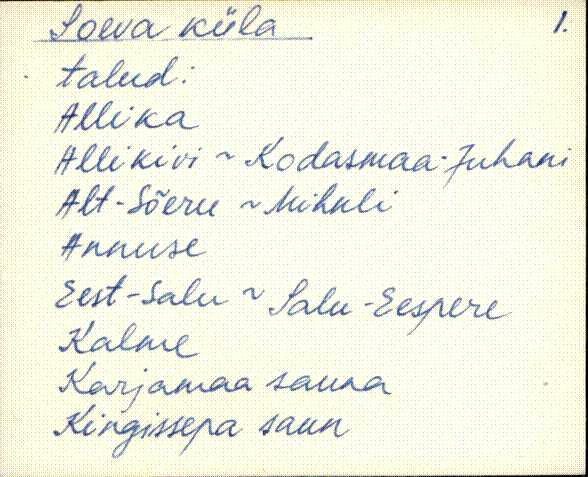 Soeva küla 1.
talud:
Allika
Allikivi ~ Kodasmaa-Juhani
Alt-Sõeru ~ Mihkli
Annuse
Eest-Salu ~ Salu-Eespere
Kalme
Karjamaa sauna
Kingissepa saun